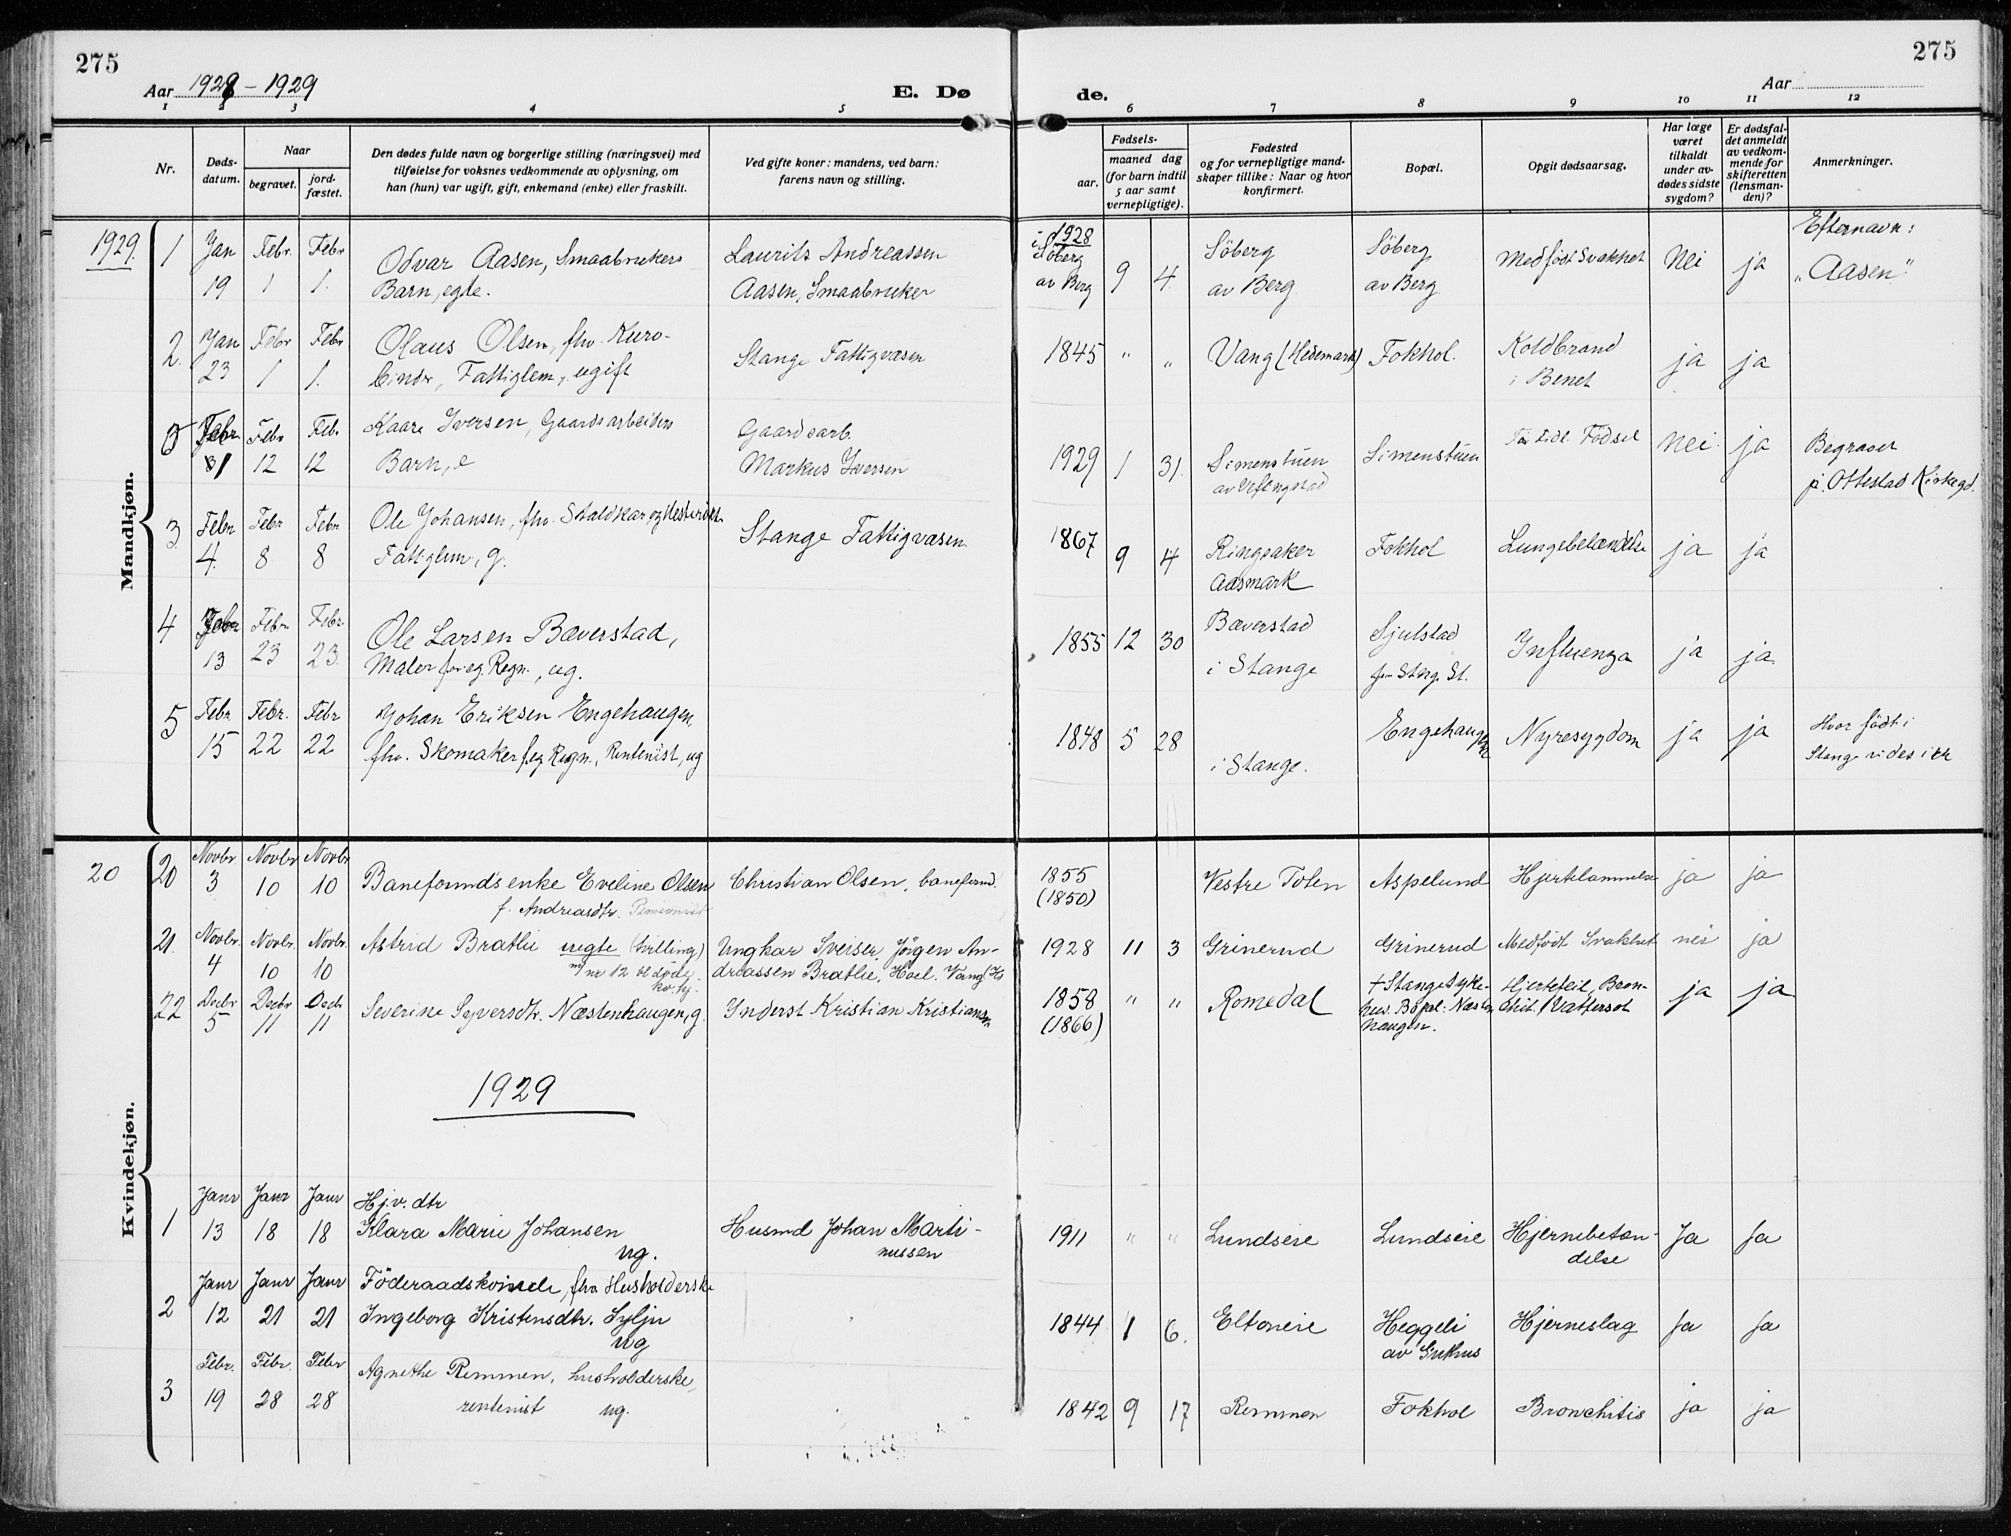 275
275
Aar 1928 - 1929
E. Dø de.
Aar
1 2 3 4 5 6 7 8 9 10 11 12
Nr.
Døds-
datum.
Naar
begravet.
jord-
fæstet.
Den dødes fulde navn og borgerlige stilling (næringsvei) med
tilføielse for voksnes vedkommende av oplysning, om
han (hun) var ugift, gift, enkemand (enke) eller fraskilt.
Ved gifte koner: mandens, ved barn:
farens navn og stilling.
Fødsels-
aar.
maaned dag
(for barn indtil
5 aar samt
vernepligtige).
Fødested
og for vernepligtige mand-
skaper tillike: Naar og hvor
konfirmert.
Bopæl.
Opgit dødsaarsag.
Har læge
været
tilkaldt
under av-
dødes sidste
sygdom?
Er dødsfal-
det anmeldt
av vedkom-
mende for
skifteretten
(lensman-
den)?
Anmerkninger.
Mandkjøn.
1929. 1 Jan Febr. Febr Odvar Aasen, Smaabrukers Laurits Andreassen 1928 Söberg Söberg Medfödt Svakhet Nei ja Efternavn:
19 1 1. Barn, egte. Aasen, Smaabruker i Söberg av Berg 9 4 av Berg av Berg "Aasen"
2. Jan Febr Febr Olaus Olsen, fhv. Kurv- Stange Fattigvæsen 1845 " " Vang (Hedemark) Fokhol. Koldbrand ja ja
23 1 1. binder, Fattiglem, ugift i Benet
Febr Febr Kaare Iversen, Gaardsarbeiders Gaardsarb. 1929 1 31. Simenstuen Simenstuen For tidl Födsel Nei ja Begravet
12 12 Barn, e Markus Iversen p. Ottestad Kirkegd.
3. Febr Febr Febr Ole Johansen, fhv. Staldkar og Stange Fattigvæsen. 1867 9 4 Ringsaker Fokhol Lungebetændelse ja ja
4. 8 8 Fattiglem, g. Aasmark
4 Febr Febr. Ole Larsen Bæverstad, 1855 12 30 Bæverstad Sjulstad Influenza ja ja
13 23 23. Maler for eg. Regn., ug. i Stange St.
5 Febr. Febr. Febr Johan Eriksen Engehaugen, 1848 5 28 Engehaugen Nyresygdom ja ja Hvor födt i
15 22 22 fhv. Skomaker f. eg Regn., Rentenist, ug i Stange. Stange vides ikke
Kvindekjøn.
20 20 Novbr Novbr Novbr Baneformds enke Eveline Olsen Christian Olsen, baneformd. 1855 Vestre Toten Aspelund Hjertelammelse ja ja
3 10 10 f. Andreasdtr. Pensionist (1850)
21. Novbr. Novbr. Novbr. Astrid Bratlie uegte (tvilling) Ungkar Sveiser Jörgen An- 1928 11 3 Grinerud Grinerud Medfödt Svakhet nei ja
4 10 10 m/nr 12 dreassen Bratlie, Hoel. Vang
22 Decbr Decbr Decbr Severine Syversdtr. Næstenhaugen, g. Inderst Kristian Kristiansen 1858 " " Romedal + Stange Syke- Hjertefeil, Bron- ja ja
5 11 11 (1866) hus. Bopæl: Næsten- chit. / Vattersot
haugen.
1929
Janr Janr Janr Hj.v. dtr
1 13 18 18 Klara Marie Johansen Husmd Johan Marti- 1911 " " Lundseie Lundseie Hjernebetæn- Ja Ja
ug. nussen delse
Janr Janr Janr Föderaadskvinde, fhv. Husholderske
2 12 21 21 Ingeborg Kristensdtr. Sylju 1844 1 6. Eltoneie Heggeli Hjerneslag Ja Ja
ug av Guthus
Febr. Febr. Febr Agnethe Remmen, husholderske,
3 19 28 28 rentenist ug. 1842 9 17 Remmen Fokhol Bronchitis ja ja